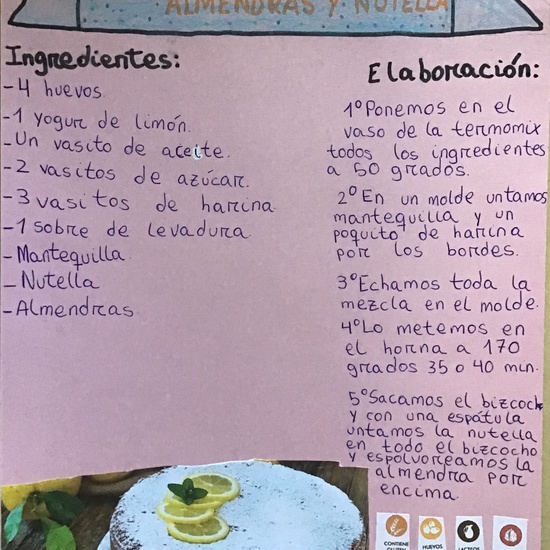 ALMENDRAS Y NUTELLA
Ingredientes:
-4 huevos
-1 yogur de limón.
-Un vasito de aceite.
-2 vasitos de azúcar.
-3 vasitos de harina
-1 sobre de levadura
-Mantequilla
-Nutella
-Almendras
Elaboración:
1º Ponemos en el
vaso de la termomix
todos los ingredientes
a 50 grados.
2º En un molde untamos
mantequilla y un
poquito de harina
por los bordes.
3º Echamos toda la
mezcla en el molde.
4º Lo metemos en
el horna a 170
grados 35 o 40 min.
5º Sacamos el bizcoch
y con una espátula
untamos la nutella
en todo el bizcocho
y espolvoreamos la
almendra por
encima.
CONTIENE GLUTEN
HUEVOS
LÁCTEOS